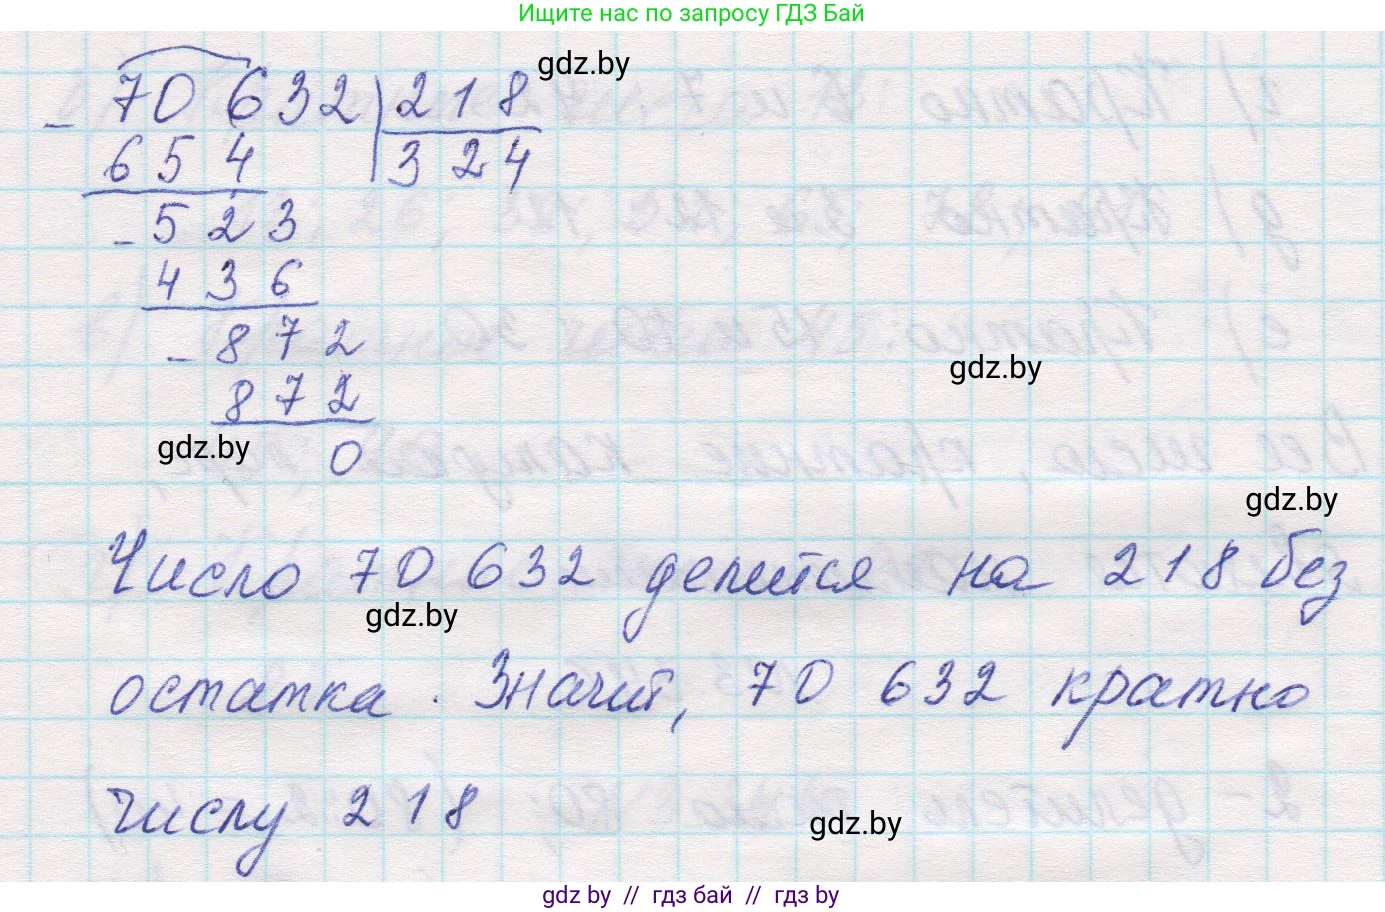 Ищите нас по запросу ГДЗ Бай
gdz.by
70 632 218
654 324
523
436
872
gdz.by
872
gdz.by
0
gdz.by
Число 70 632 делится на 218 без
gdz.by
остатка. Значит, 70 632 кратно
числу 218
gdz.by
gdz by // гдз бай // гдз by